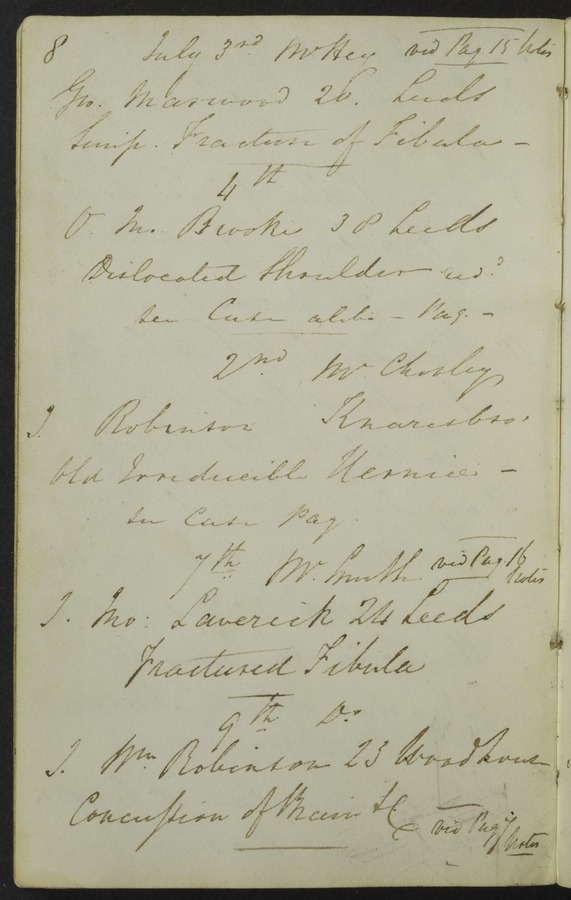 8 July 3rd Mr Hey vid Pag 15 Notes
Geo. Marwood 20. Leeds
Simp. Fracture of Fibula -
4th
O. Brooke 38 Leeds
Dislocated Shoulder red.
see Case - Pag -
2nd Mr Chorley
J. Robinson Knaresbro.
Old Irreducible Hernia -
see Case Pag
7th Mr. Smith vid Pag. 16 Notes
J. Jno: Laverick 24 Leeds
Fractured Fibula
9th Do.
J. Wm Robinson 23 Woodhouse
Concussion of Brain &c vid Pag Notes